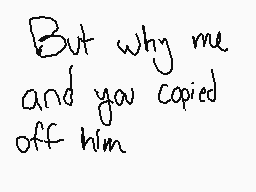 But why me
and you copied
off him